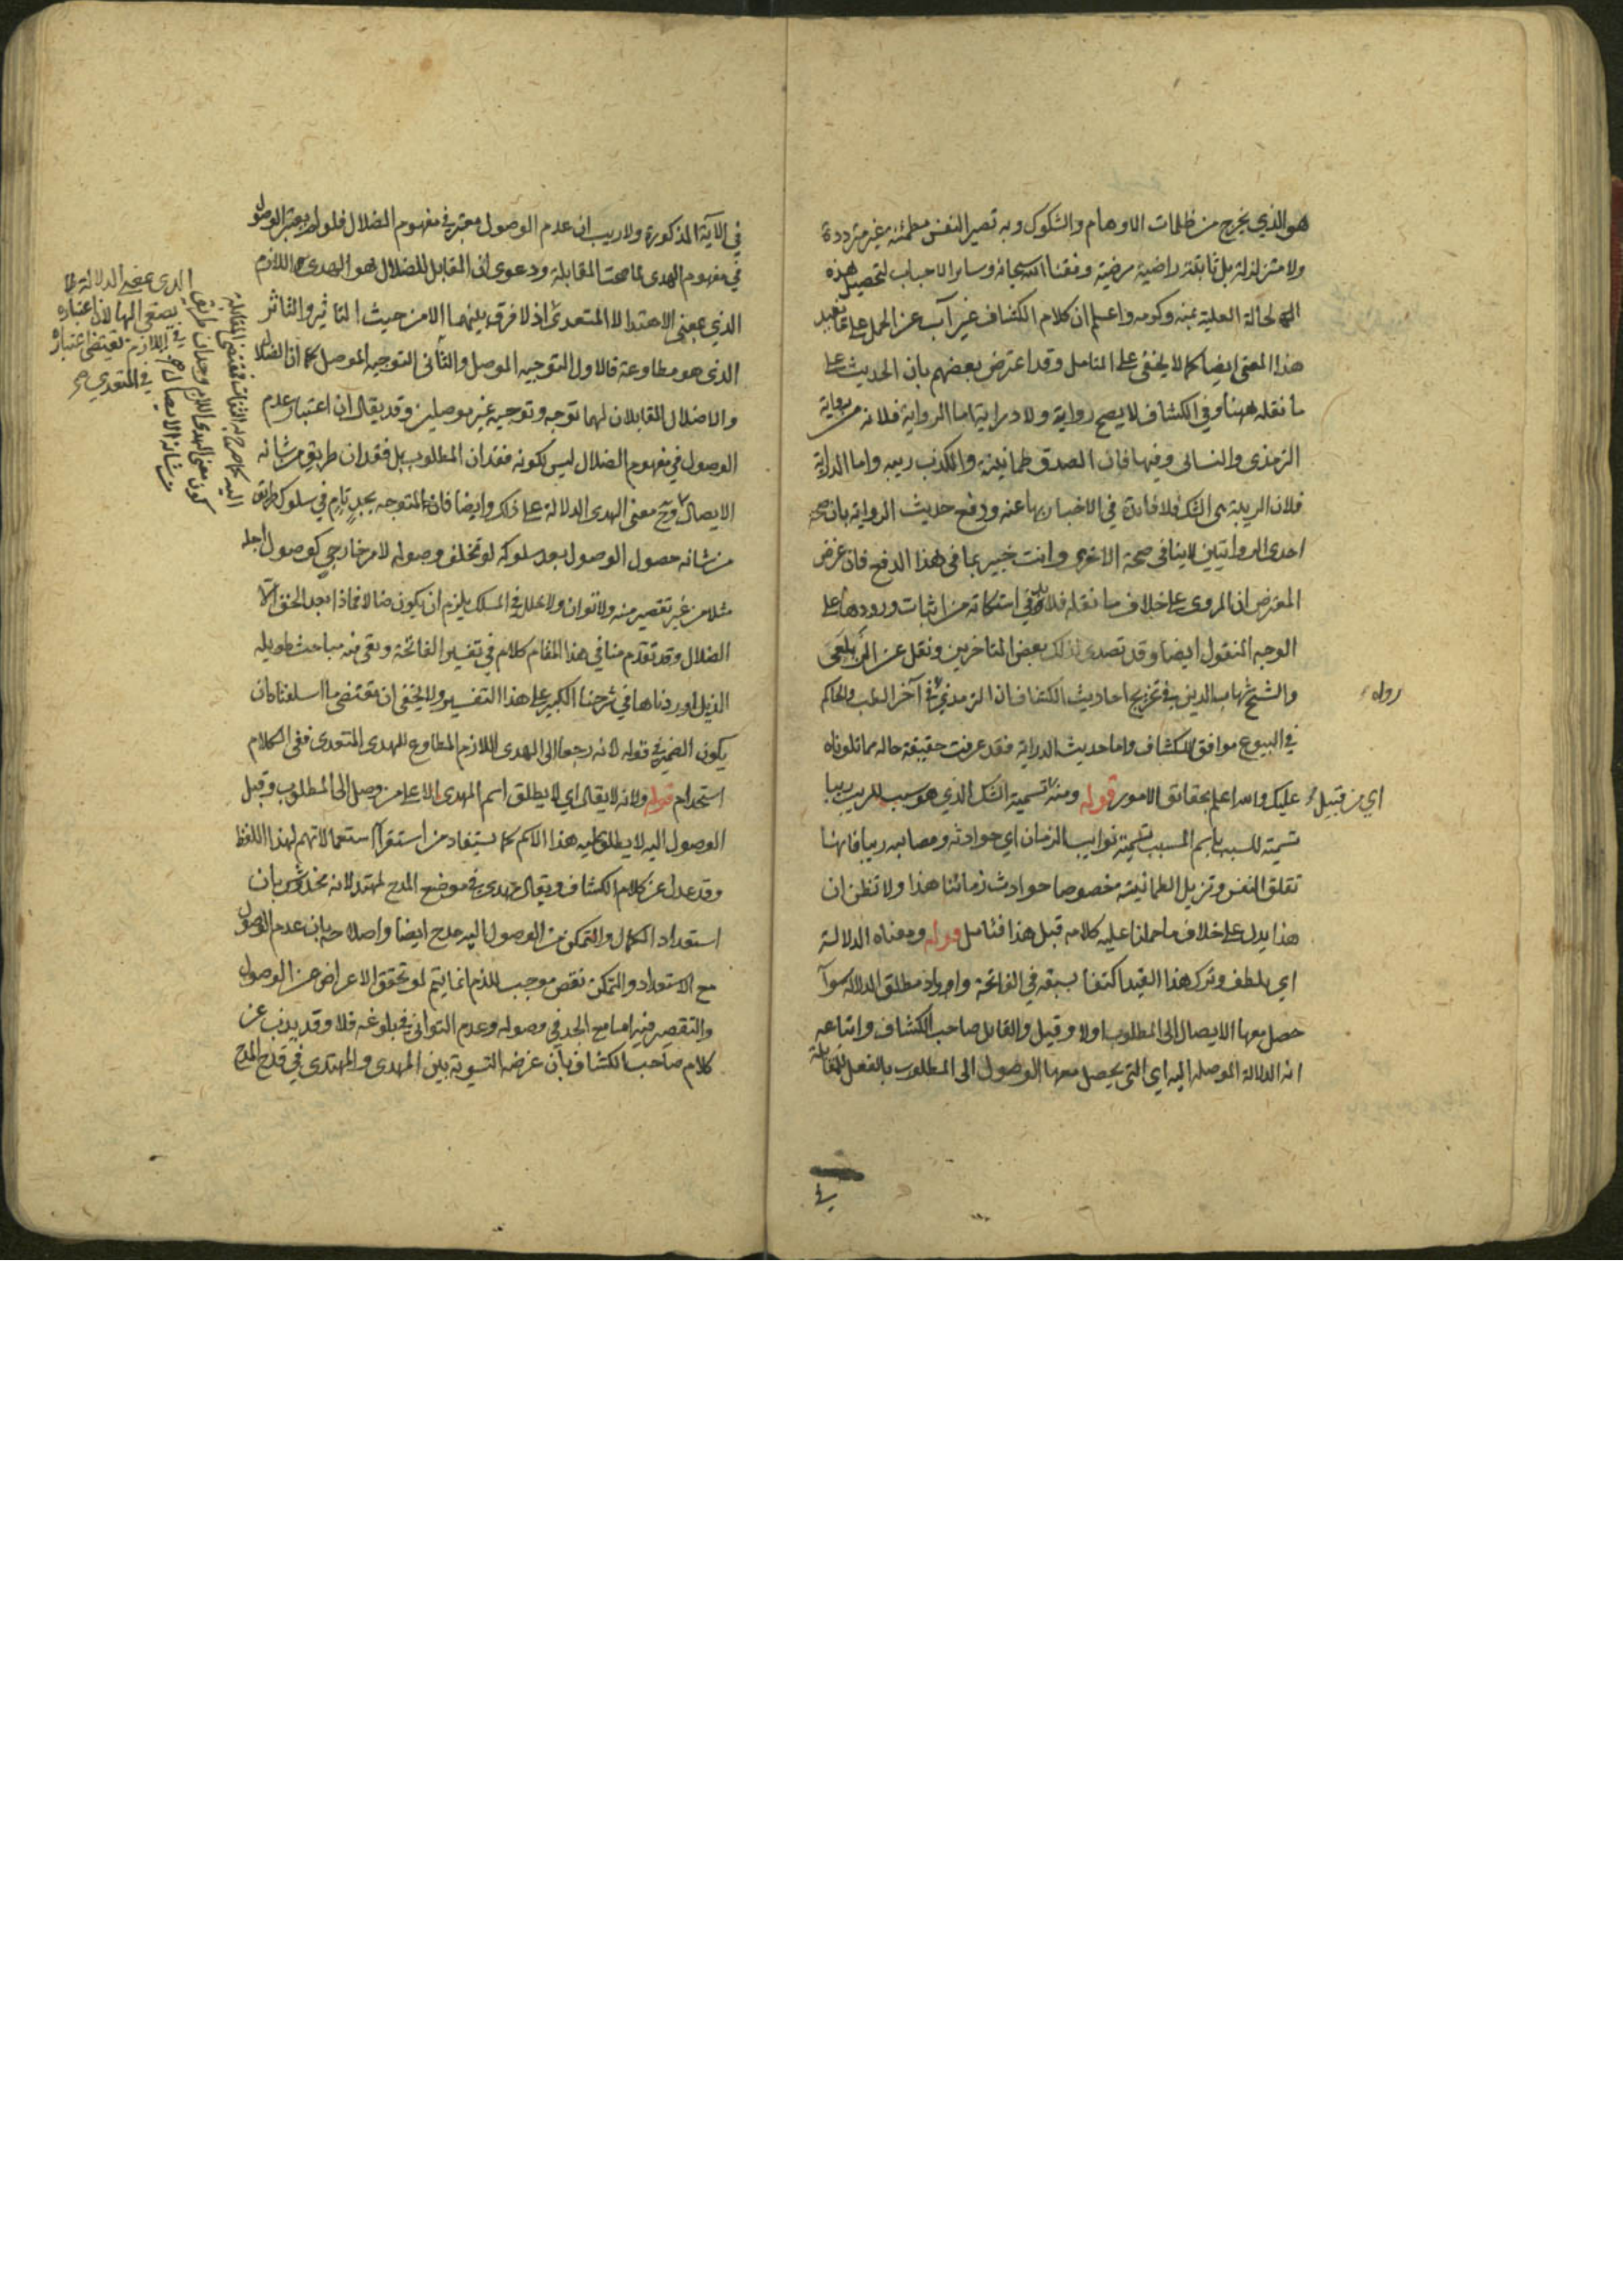 هو الذي يخرج من ظلمات الاوهام والشكوك وبه تصير النفس مطمئنة غير مترددة
ولا متزلزلة بل ثابتة راضية مرضية وفقنا الله سبحانه وسائر الاحباب لتحصيل هذه
الحالة العلية بمنه وكرمه واعلم ان كلام الكشاف غير آب عن الحمل على
هذا المعنى ايضا كما لا يخفى على المتامل وقد اعترض بعضهم بان الحديث على
ما نقله ههنا وفي الكشاف لا يصح رواية ولا دراية اما الرواية فلانه من رواية
الترمذي والنسائي وفيها فان الصدق طمانينة والكذب ريبه واما الدراية
فلان الريبة هي الشك فلا فائدة في الاخبار بها عنه ودفع حديث الرواية بان صحة
احدى الروايتين لا ينافي صحة الاخرى وانت خبير بما في هذا الدفع فان غرض
المعترض ان المروى على خلاف ما نقله فلا بد في اسكاته من اثبات وروده على
الوجه المنقول ايضا وقد تصدى لذلك بعض المتاخرين ونقل عن الزيلعى
والشيخ شهاب الدين في تخريج احاديث الكشاف ان الترمذي رواه في آخر الطب والحاكم
في البيوع موافق للكشاف واما حديث الدراية فقد عرفت حقيقة حاله مما تلوناه
عليك والله اعلم بحقائق الامور قوله ومنه اي من قبيل تسمية الشك الذي هو سبب للريب ريبا
تسمية للسبب باسم المسبب تسمية نوايب الزمان اي حوادثه ومصائبه ريبا فانها
تقلق النفس وتزيل الطمانينة خصوصا حوادث زماننا هذا ولا تظنن ان
هذا يدل على خلاف ما حملنا عليه كلامه قبل هذا فتامل قوله ومعناه الدلالة
اي بلطف وترك هذا القيد اكتفا بسبقه في الفاتحة واراد مطلق الدلاله سوآ
حصل معها الايصال الى المطلوب اولا وقيل والقايل صاحب الكشاف واتباعه
انه الدلالة الموصله اليه اي التي يحصل معها الوصول الى المطلوب بالفعل للمقابلة
في الآية المذكورة ولا ريب ان عدم الوصول معتبر في مفهوم الضلال فلو لم يعتبر الوصول
في مفهوم الهدى لما صحت المقابلة ودعوى ان المقابل للضلال هو الهدى اللازم
الذي بمعنى الاهتدا لا المتعدى اذ لا فرق بينهما الا من حيث التاثير والتاثر
الذي هو مطاوعة فالاول التوجيه الموصل والثانى التوجه الموصل كما ان الضلال
والاضلال المقابلان لهما توجه وتوجيه غير موصلين وقد يقال ان اعتبار عدم
الوصول في مفهوم الضلال ليس لكونه فقدان المطلوب بل فقدان طريق من شانه
الايصال وح معنى الهدى الدلالة على ذلك وايضا فان المتوجه بجد تام في سلوك طريق
من شانه حصول الوصول بعد سلوكه لو تخلف وصوله لامر خارجي كوصول اجله
مثلا من غير تقصير منه ولا توان ولا خلل في المسلك يلزم ان يكون ضالا فماذا بعد الحق الا
الضلال وقد تقدم منا في هذا المقام كلام في تفسير الفاتحة وبقى فيه مباحث طويله
الذيل اوردناها في شرحنا الكبير على هذا التفسير ولا يخفى ان مقتضى ما اسلفنا كان
يكون الضمير في قوله لانه رجعا الى الهدى اللازم المطاوع للهدى المتعدى ففي الكلام
استخدام قوله ولانه لا يقال اي لا يطلق اسم المهدى الا على من وصل الى المطلوب وقبل
الوصول اليه لا يطلق عليه هذا الاسم كما يستفاد من استقرآ استعمالاتهم لهذا اللفظ
وقد عدل عن كلام الكشاف ويقال مهدى في موضع المدح لمهتد لانه مخدوش بان
استعداد الكمال والتمكن من الوصول اليه مدح ايضا واصلاحه بان عدم الوصول
مع الاستعداد والتمكن نقص موجب للذم انما يتم لو تحقق الاعراض عن الوصول
والتقصير فيه اما مع الجد في وصوله وعدم التواني في بلوغه فلا وقد يذب عن
كلام صاحب الكشاف بان غرضه التسوية بين المهدى والمهتدى في المدح
رواه
اي من قبيل
في اللازم يقتضى اعتباره
في المتعدي صح